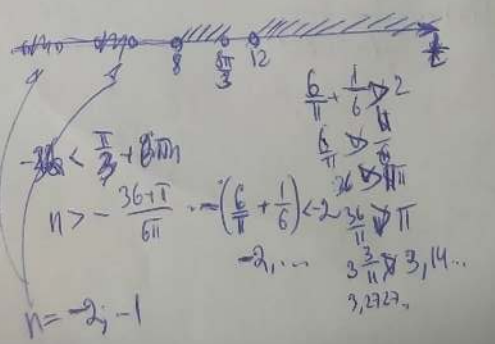 8 8π/3 12 t
6/π + 1/6 > 2
6/π > 11/6
36 > 11π
-36 < π/3 + 6πn
n > - (36+π)/(6π) -(6/π + 1/6) < -2
36/11 > π
-2,...
3 3/11 > 3,14...
3,2727..
n = -2; -1